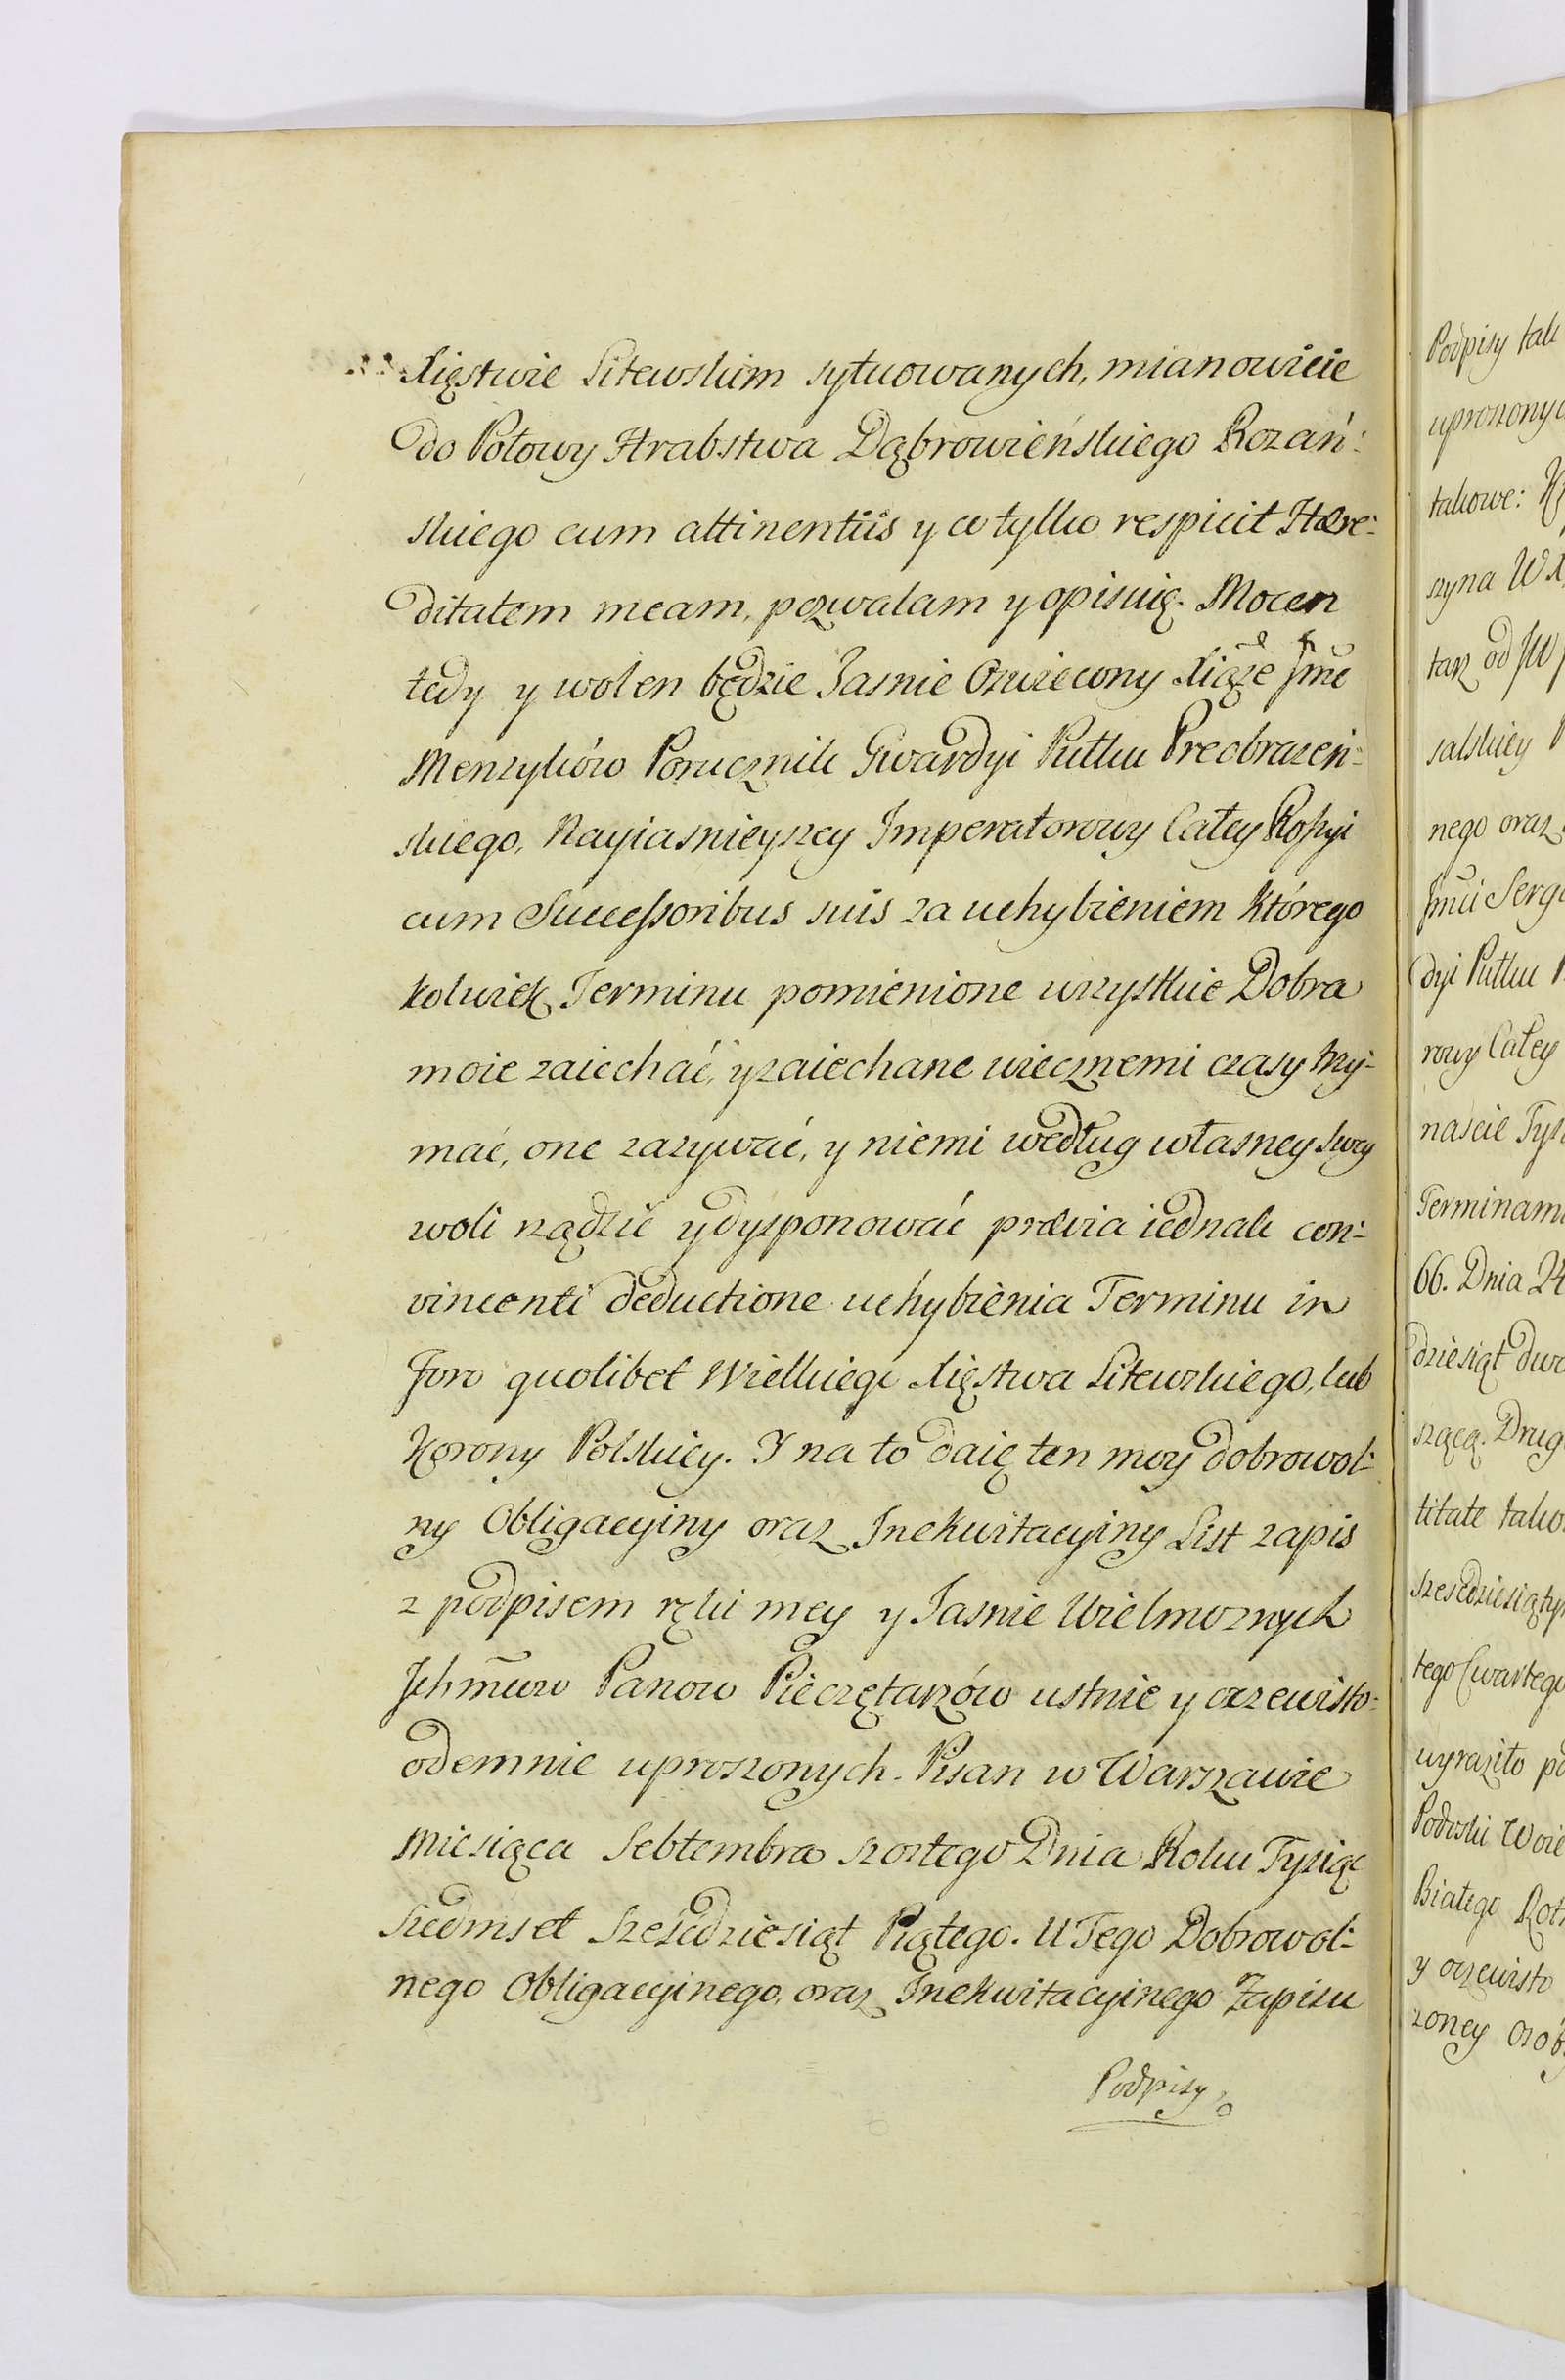 Xięstwie Litewskim sytuowanych, mianowicie
do Połowy Hrabstwa Dąbrowieńskiego Rozań:
skiego cum attinentiis y co tylko respicit Hære:
ditatem meam, pozwalam y opisuię. Mocen
tedy y wolen będzie Jasnie Oswiecony Xiąze Jmć
Menzyków Porucznik Gwardyi Pułku Preobrazeń:
skiego, Nayiasnieyszey Imperatorowy Całey Rossyi
cum Successoribus suis za uchybieniem którego
kolwiek Terminu pomienione wszystkie Dobra
moie zaiechać, y zaiechane wiecznemi czasy trzy:
mać, one zazywać, y niemi według własney swey
woli rządzić y dysponować prævia iednak con:
vincenti deductione uchybienia Terminu in
Foro quolibet Wielkiego Xięstwa Litewskiego, lub
Korony Polskiey. Y na to daię ten moy dobrowol:
ny Obligacyiny oraz Inekwitacyiny List zapis
z podpisem ręki mey y Jasnie Wielmoznych
Ichmciow Panow Pieczętarzów ustnie y oczewisto:
odemnie uproszonych. Pisan w Warszawie
Miesiąca Sebtembra szostego Dnia Roku Tysiąc
Siedmset Szescdziesiąt Piątego. U Tego Dobrowol:
nego Obligacyinego, oraz Inekwitacyinego Zapisu
Podpisy
Podpisy tak
takowe:
szyna
tarz od JW
salskiey
nego oraz
Jmci
dyi Pułku
rowy Całey
nascie
66. Dnia
dziesiąt
szącą.
titate
tego Czwartego
wyraziło
Białego
y oczewisto